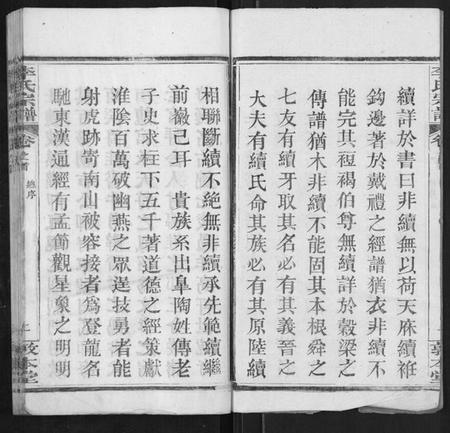 續詳於書曰非續無以荷天庥續袵
鈎邊著於戴禮之經譜猶衣非續不
能完其裋褐伯尊無續詳於穀梁之
傳譜猶木非續不能固其本根舜之
七友有續牙取其名必有其義晉之
大夫有續氏命其族必有其原陸續
李氏宗譜
卷之首
總序
敦本堂
相聯斷續不絶無非續承先範續繼
前徽己耳 貴族系出臯陶姓傳老
子史求柱下五千著道德之經策獻
淮陰百萬破幽燕之眾逞技勇者能
射虎跡嵜南山被容接者爲登龍名
馳東漢通經有孟節觀星象之明明